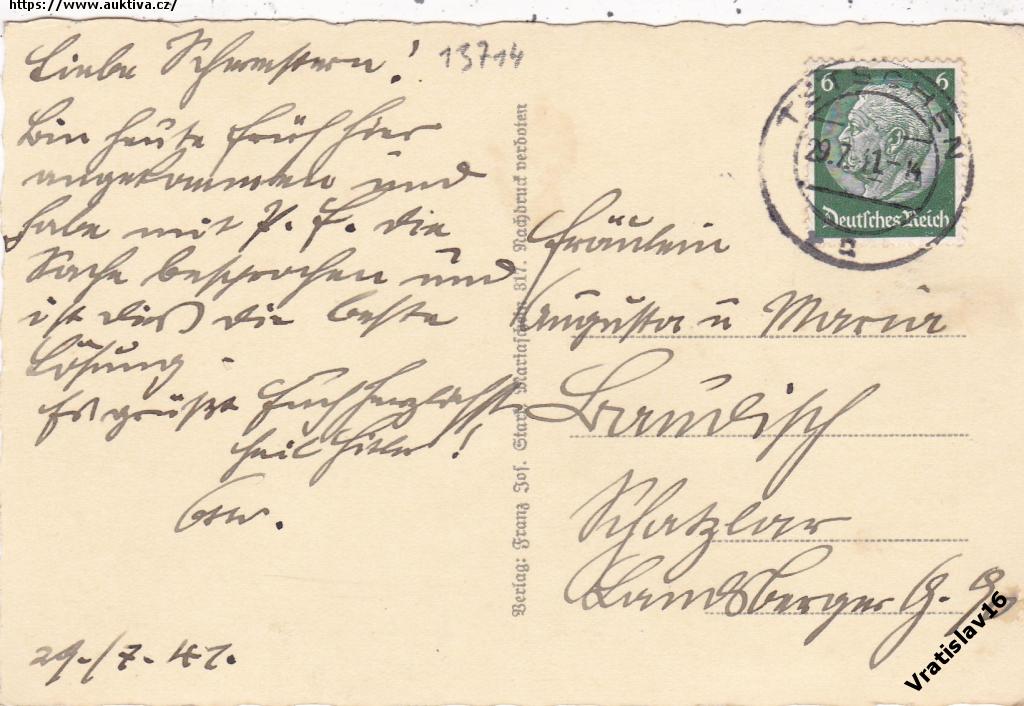 https://www.auktiva.cz/
Liebe Schwestern!
13714
Bin heute früh hier
angekommen und
habe mit P. F. die
Sache besprochen und
ist dies die beste
Lösung.
Es grüßt Euch herzlichst
Heil Hitler!
29./7.41.
Verlag: Franz Jos. Stark, Mariaschein 317. Nachdruck verboten
6 6
TETSCHEN
29.7.41-14
Deutsches Reich
a
Fräulein
Augusta u Maria
Baudisch
Schatzlar
Landsberger G.
Vratislav16